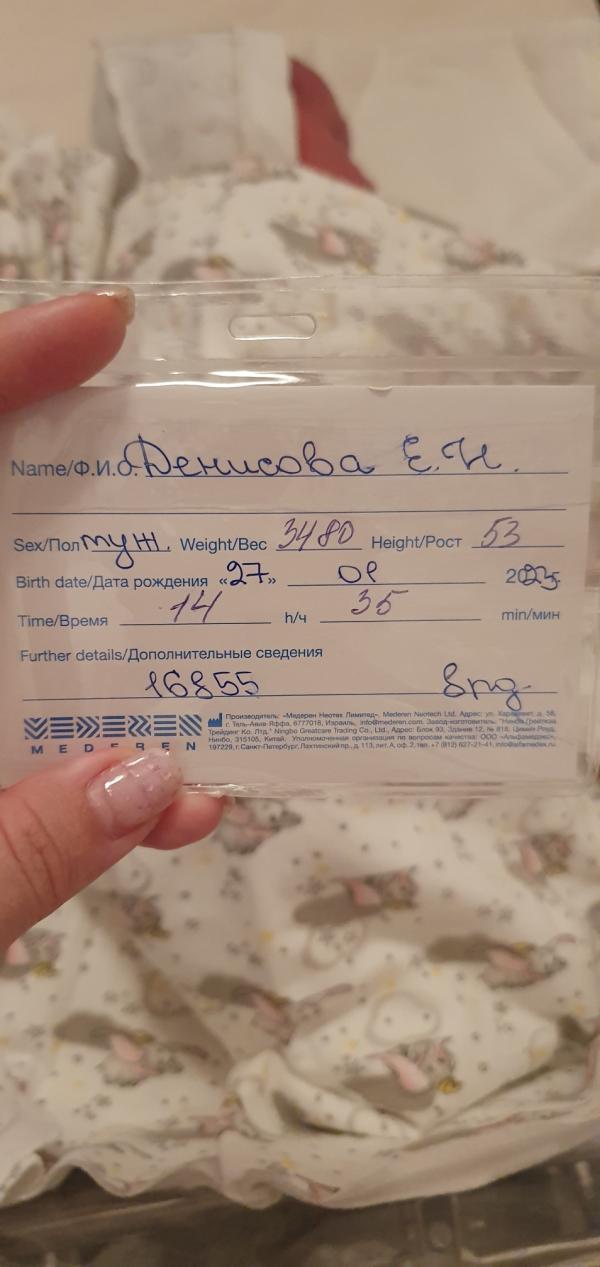 Name/Ф.И.О. Денисова Е.Н.
Sex/Пол муж. Weight/Вес 3480 Height/Рост 53
Birth date/Дата рождения «27» 2025
Time/Время 14 h/ч 35 min/мин
Further details/Дополнительные сведения
16855
MEDEREN
Производитель: «Медерен Неотех Лимитед», Mederen Neotech Ltd. Адрес: ул. 58,
г. Тель-Авив Яффа, 6777018, Израиль, info@mederen.com. Завод-изготовитель:
Трейдинг Ко. Лтд." Ningbo Greatcare Trading Co., Ltd., Адрес: Блок 93, Здание 12, № 818,
Нинбо, 315105, Китай. Уполномоченная организация по вопросам качества: ООО
197229, г. Санкт-Петербург, Лахтинский пр., д. 113, лит. А, оф. 2, тел. +7 (812) 627-21-41,